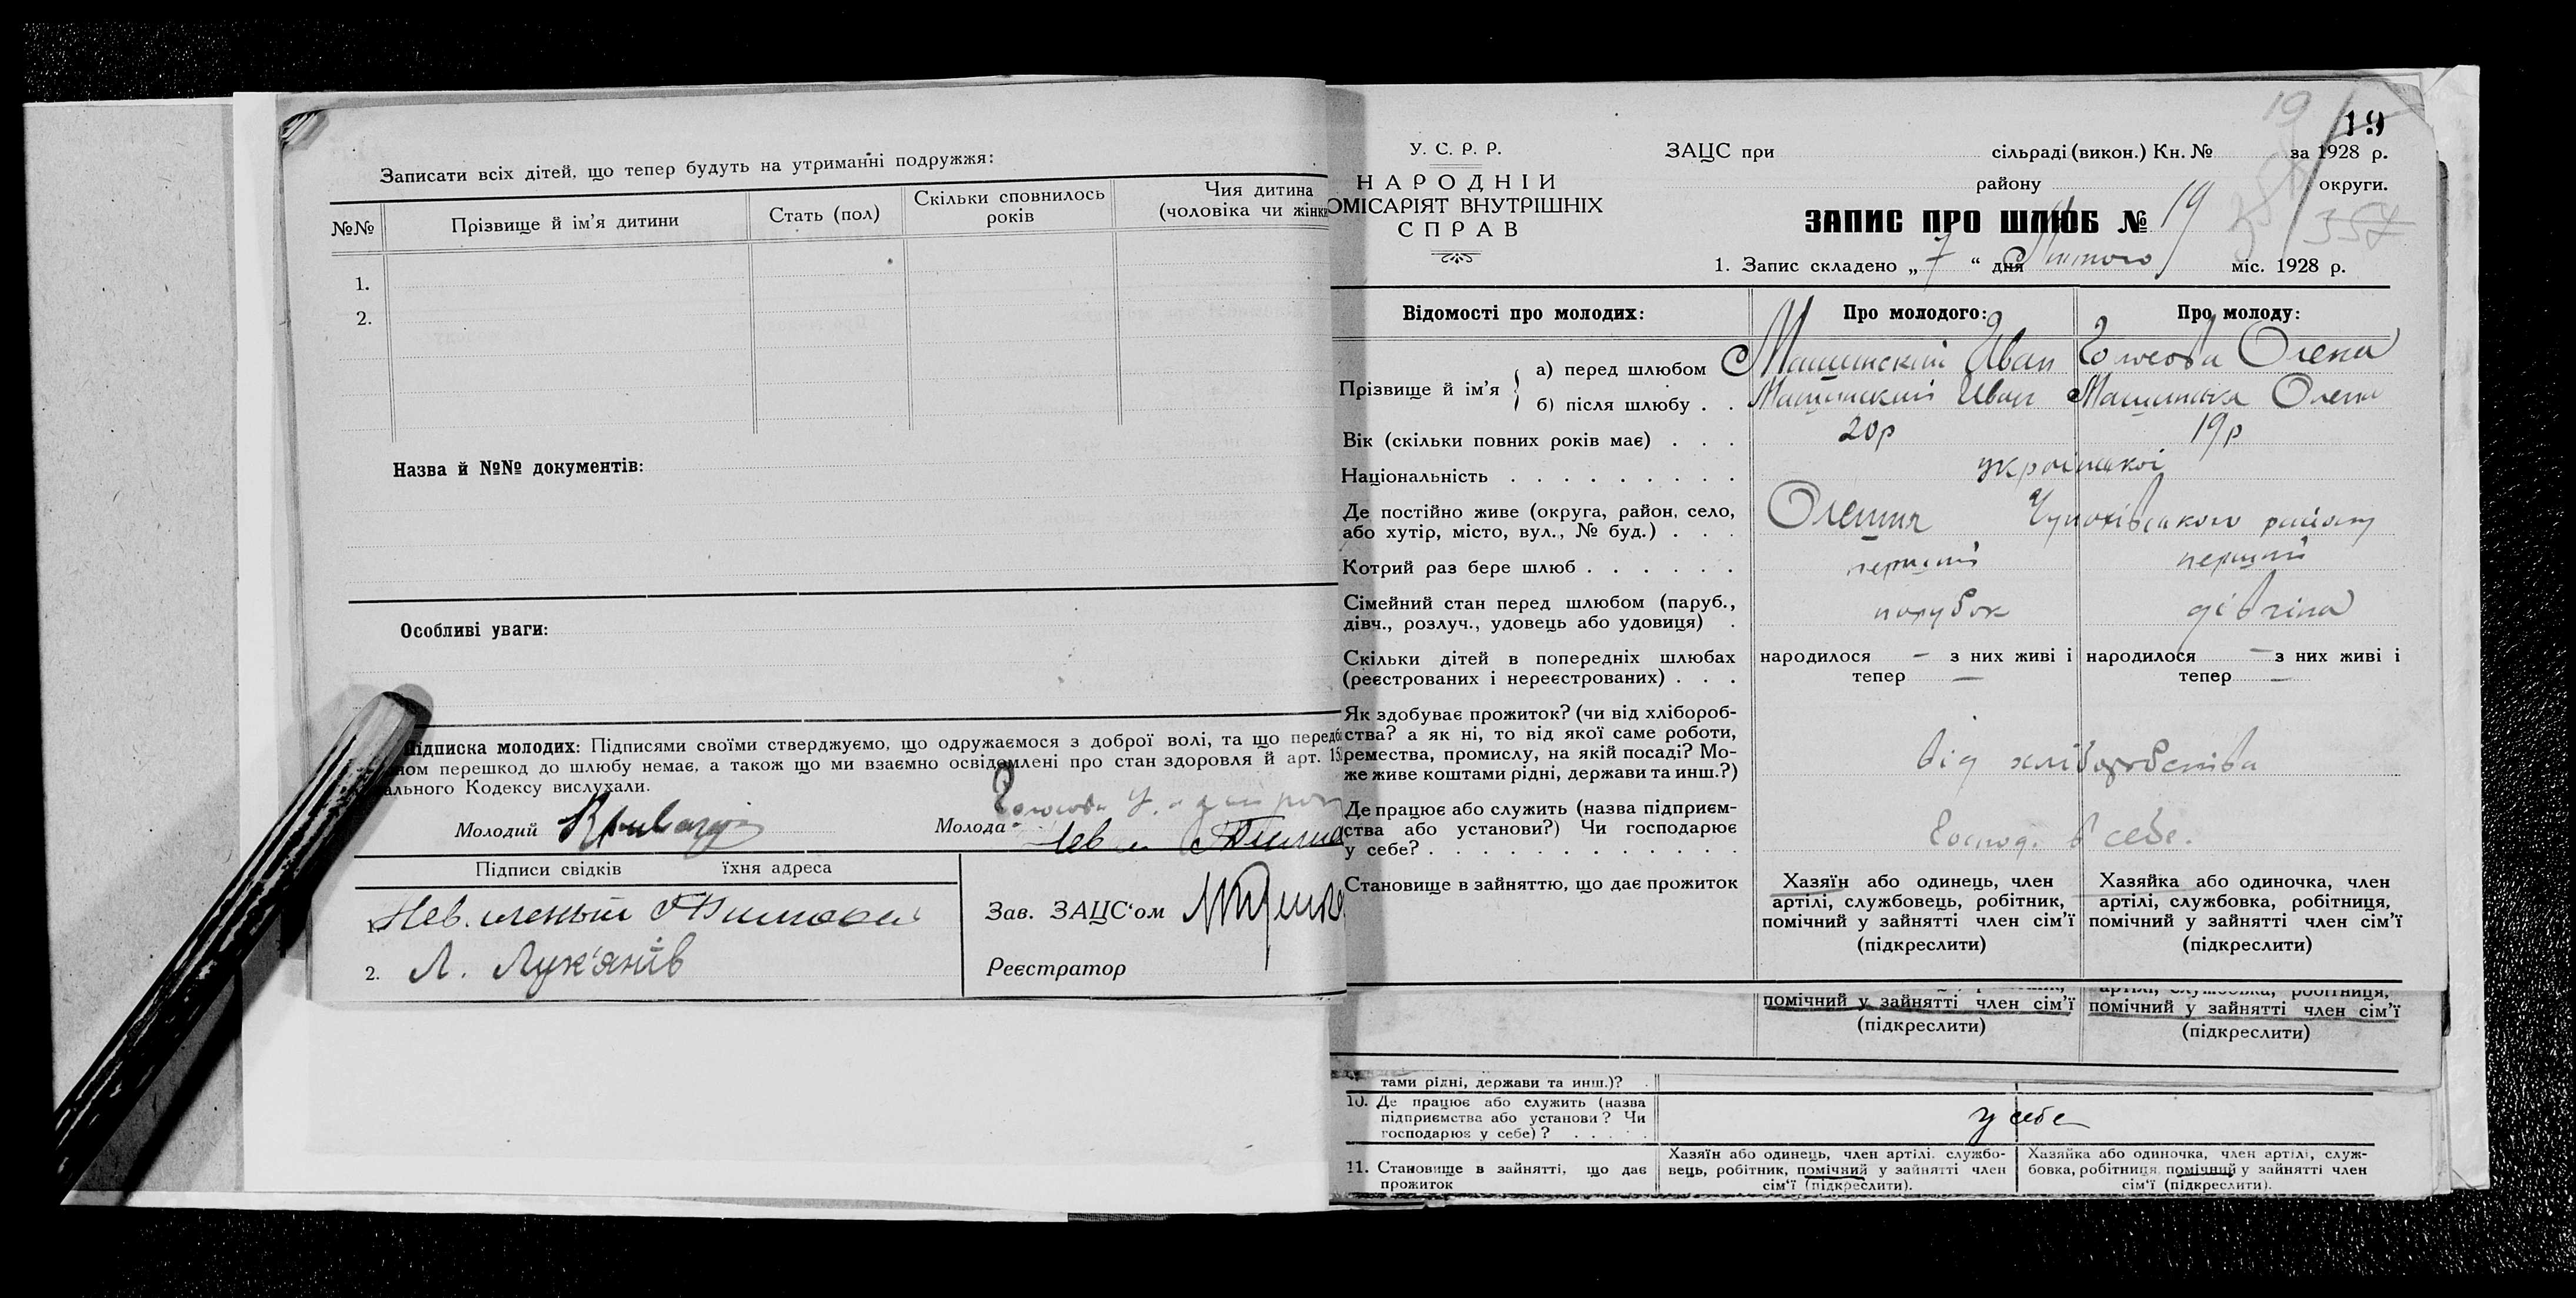 Записати всіх дітей, що тепер будуть на утриманні подружжя:
№№ Прізвище й ім'я дитини Стать (пол) Скільки сповнилось років Чия дитина (чоловіка чи жінки
1.
2.
Назва й №№ документів:
Особливі уваги:
Підписка молодих: Підписями своїми стверджуємо, що одружаємося з доброї волі, та що передб
ном перешкод до шлюбу немає, а також що ми взаємно освідомлені про стан здоровля й арт. 15
ального Кодексу вислухали.
Молодий
Молода
Підписи свідків їхня адреса
1.
2. Л. Лук'янів
Зав. ЗАЦС'ом
Реєстратор
19
19
357
У. С. Р. Р.
НАРОДНІЙ
ОМІСАРІЯТ ВНУТРІШНІХ
СПРАВ
ЗАЦС при сільраді (викон.) Кн. № за 1928 р.
району округи.
ЗАПИС ПРО ШЛЮБ № 19
1. Запис складено „ 7 “ дня Лютого міс. 1928 р.
Відомості про молодих: Про молодого: Про молоду:
Прізвище й ім'я
а) перед шлюбом Машинский Иван Олена
б) після шлюбу . . Машинский Иван Машинська Олена
Вік (скільки повних років має) . . . 20р 19р
Національність . . . . . . . . . української
Де постійно живе (округа, район, село,
або хутір, місто, вул., № буд.) . . . району
Котрий раз бере шлюб . . . . . . перший перший
Сімейний стан перед шлюбом (паруб.,
дівч., розлуч., удовець або удовиця) . парубок дівчина
Скільки дітей в попередніх шлюбах
(реєстрованих і нереєстрованих) . . .
народилося — з них живі і
тепер —
народилося — з них живі і
тепер —
Як здобуває прожиток? (чи від хлібороб-
ства? а як ні, то від якої саме роботи,
ремества, промислу, на якій посаді? Мо-
же живе коштами рідні, держави та инш.?)
від хліборобства
Де працює або служить (назва підприєм-
ства або установи?) Чи господарює
у себе? . . . . . . . . . . . .
Господ. в себе.
Становище в зайняттю, що дає прожиток
Хазяїн або одинець, член
артілі, службовець, робітник,
помічний у зайнятті член сім'ї
(підкреслити)
Хазяйка або одиночка, член
артілі, службовка, робітниця,
помічний у зайнятті член сім'ї
(підкреслити)
помічний у зайнятті член сім'ї
(підкреслити)
артілі, службовка, робітниця,
помічний у зайнятті член сім'ї
(підкреслити)
тами рідні, держави та инш.)?
10. Де працює або служить (назва
підприємства або установи? Чи
господарює у себе)? . . . . .
у себе
11. Становище в зайнятті, що дає
прожиток
Хазяїн або одинець, член артілі, службо-
вець, робітник, помічний у зайнятті член
сім'ї (підкреслити).
Хазяйка або одиночка, член артілі, служ-
бовка, робітниця, помічний у зайнятті член
сім'ї (підкреслити).